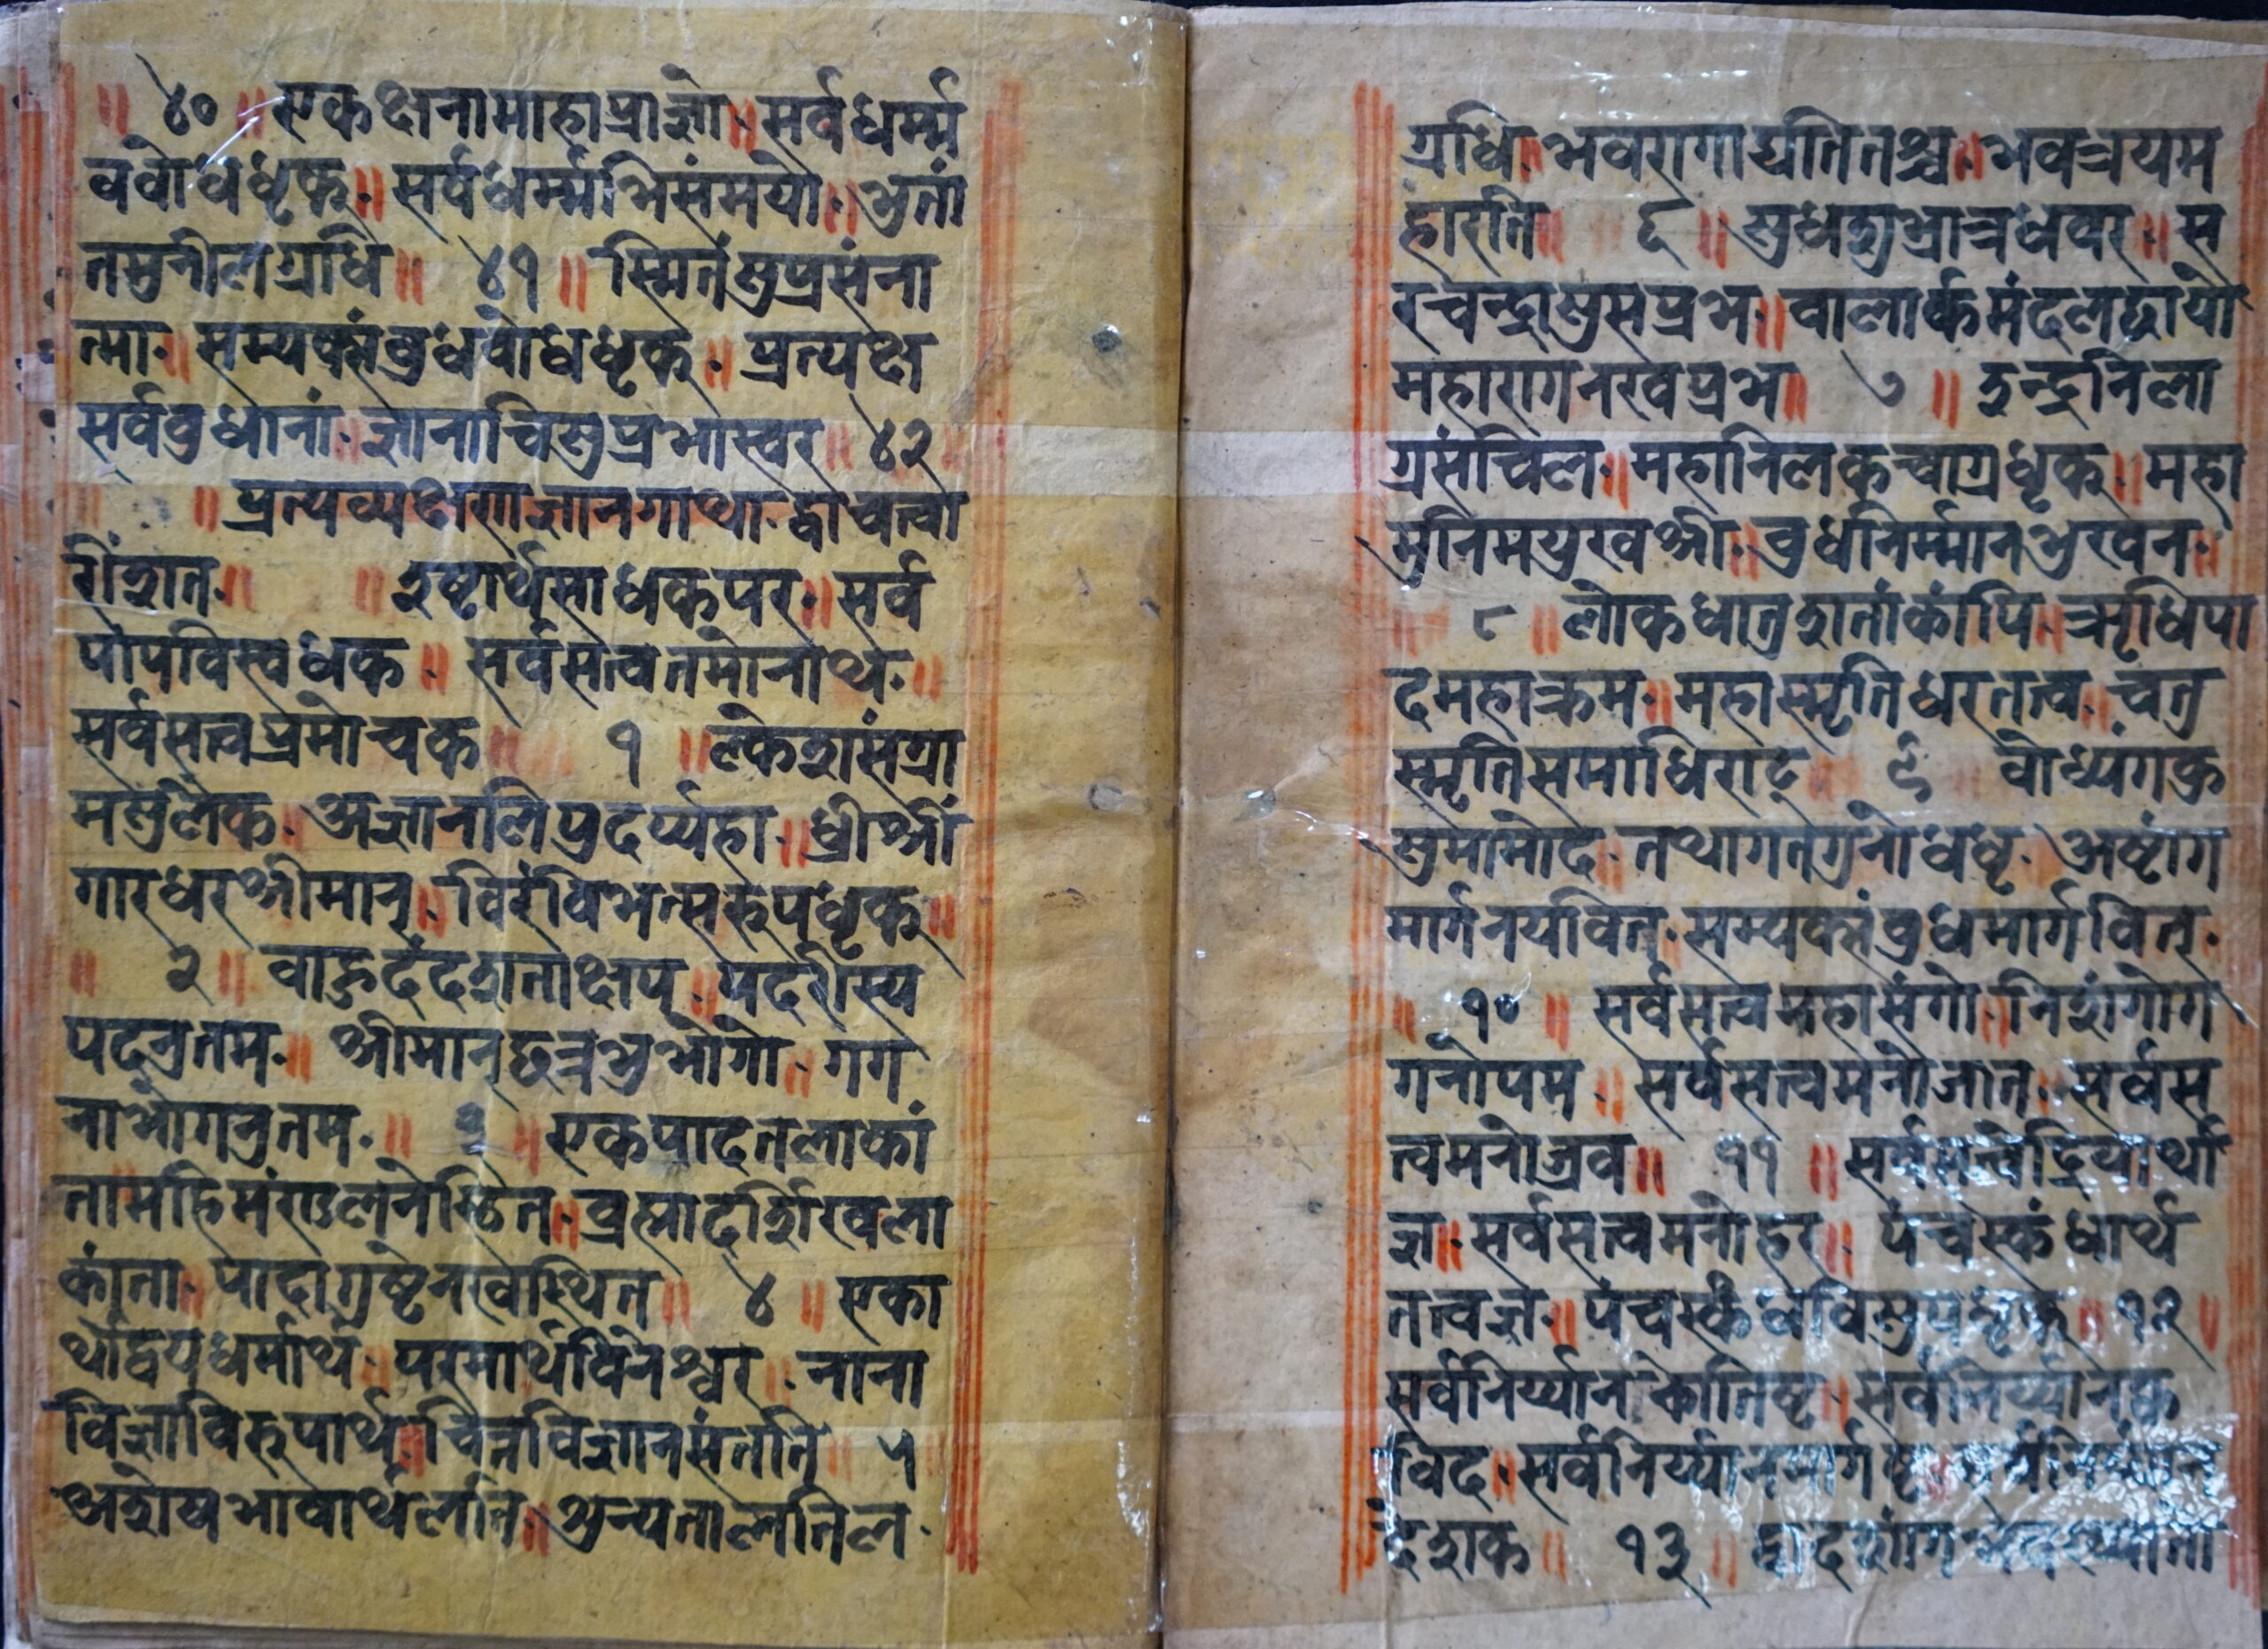 ॥ ४० ॥ एकक्षनामाहाप्राज्ञो॥ सर्वधर्म्म
ववोधधृक्॥ सर्वधर्म्मभिसंमयो॥ भुतां
तमुनीलग्रधि॥ ४१ ॥ स्मितंसुप्रसंना
त्मा॥ सम्यक्संवुधवोधधृक्॥ प्रत्यक्ष
सर्ववुधानां॥ ज्ञानाचिसुप्रभास्वर॥ ४२ ॥
॥ प्रत्यव्यक्षाणाज्ञानगाथा द्वाचत्वा
रिंशत॥ ॥ इष्टार्थसाधकपर॥ सर्व
पापविस्वधक॥ सर्वसत्वतमोनाथ॥
सर्वसत्वप्रमोचक॥ १ ॥ ल्केशसंग्रा
मसुलैक॥ अज्ञानलिपुदर्प्यहा॥ धीश्रीं
गारधरश्रीमान्॥ विरंविभत्सरुपधृक्॥
॥ २ ॥ वाहुदंदशताक्षप्॥ पदशिस्य
पदन्रतम॥ श्रीमान्छत्रभुभोगो॥ गग
नाभोगन्रतम॥ ३ ॥ एकपादतलाकां
तामहिमंराडलनेस्छित॥ व्रह्मादशिखला
कांता॥ पादाग्रष्टेनखेस्थित॥ ४ ॥ एका
र्थोद्वयधर्मार्थ॥ परमार्थविनेश्वर॥ नाना
विज्ञाविरुपार्थ॥ चित्तविज्ञानसंतति॥ ५
अशेषभावार्थलति॥ भुन्यतालतिल
ग्रधि॥ भवरागाद्यतितश्च॥ भवत्रयम
हारति॥ ६ ॥ सुधशुभ्रात्रधवर॥ स
रचन्द्रासुसप्रभ॥ वालार्कमंदलछायो
महारागनरवप्रभ॥ ७ ॥ इन्द्रनिला
ग्रसंचिल॥ महानिलकचाग्रधृक्॥ महा
मनिमयुरवश्री॥ वुधनिर्म्मानभुखन॥
८ ॥ लोकधात्रशतांकांपि॥ ऋृधिपा
दमहाक्रम॥ महास्मृतिधरतत्व॥ चत्र
स्मृतिसमाधिराट्॥ ९ ॥ वोध्यंगक्र
सुमामोद॥ तथागतग्रनोधधृ॥ अष्टांग
मार्गनयवित्॥ सम्यक्संवुधमार्गवित्॥
॥ १० ॥ सर्वसत्वमहासंगो॥ निशंगोग
गनोपम॥ सर्वसत्वमनोजात॥ सर्वस
त्वमनोज्रव॥ ११ ॥ सर्वसत्वेद्रियार्थो
ज्ञ॥ सर्वसत्वमनोहर॥ पंचस्कंधार्थ
तत्वज्ञ॥ पंचस्कंधविसुपधृक्॥ १२ ॥
सर्वनिर्य्यानकोतिष्ट॥ सर्वनिर्य्यानक
विद॥ सर्वनिर्य्यानमार्ग
देशक॥ १३ ॥ द्वादशांग